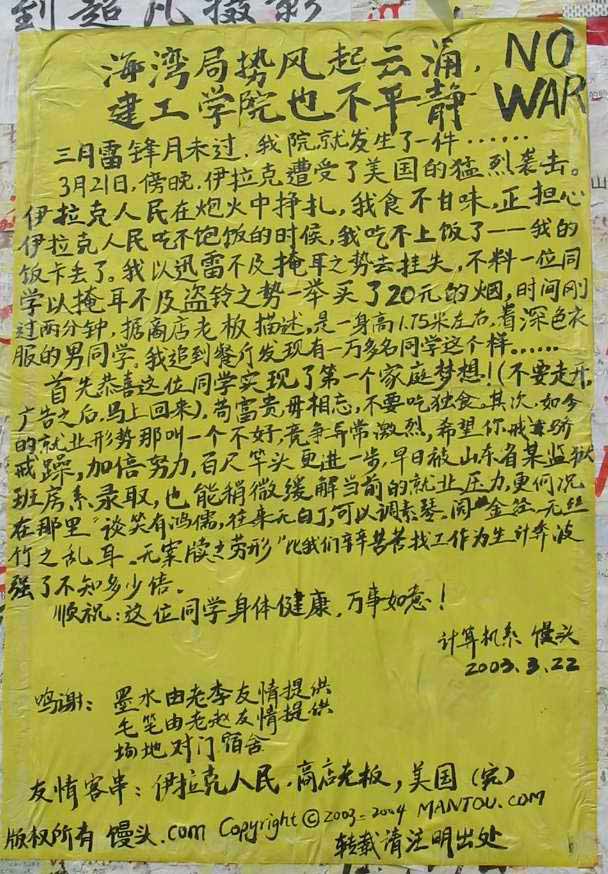 到超凡摄影
海湾局势风起云涌, NO
建工学院也不平静 WAR
三月雷锋月未过,我院就发生了一件……
3月21日,傍晚,伊拉克遭受了美国的猛烈袭击。
伊拉克人民在炮火中挣扎,我食不甘味,正担心
伊拉克人民吃不饱饭的时候,我吃不上饭了——我的
饭卡丢了。我以迅雷不及掩耳之势去挂失,不料一位同
学以掩耳不及盗铃之势一举买了20元的烟,时间刚
过两分钟,据商店老板描述,是一身高1.75米左右,着深色衣
服的男同学,我追到餐厅发现有一万多名同学这个样……
首先恭喜这位同学实现了第一个家庭梦想!(不要走开,
广告之后,马上回来),苟富贵毋相忘,不要吃独食。其次,如今
的就业形势那叫一个不好,竞争异常激烈,希望你戒骄
戒躁,加倍努力,百尺竿头更进一步,早日被山东省某监狱
班房系录取,也能稍微缓解当前的就业压力,更何况
在那里"谈笑有鸿儒,往来无白丁,可以调素琴,阅金经。无丝
竹之乱耳。无案牍之劳形"比我们辛辛苦苦找工作为生计奔波
强了不知多少倍。
顺祝:这位同学身体健康,万事如意!
计算机系 馒头
2003.3.22
鸣谢: 墨水由老李友情提供
毛笔由老赵友情提供
场地对门宿舍
友情客串:伊拉克人民,商店老板,美国(完)
版权所有 馒头.com Copyright©2003-2004 MANTOU.COM
转载请注明出处